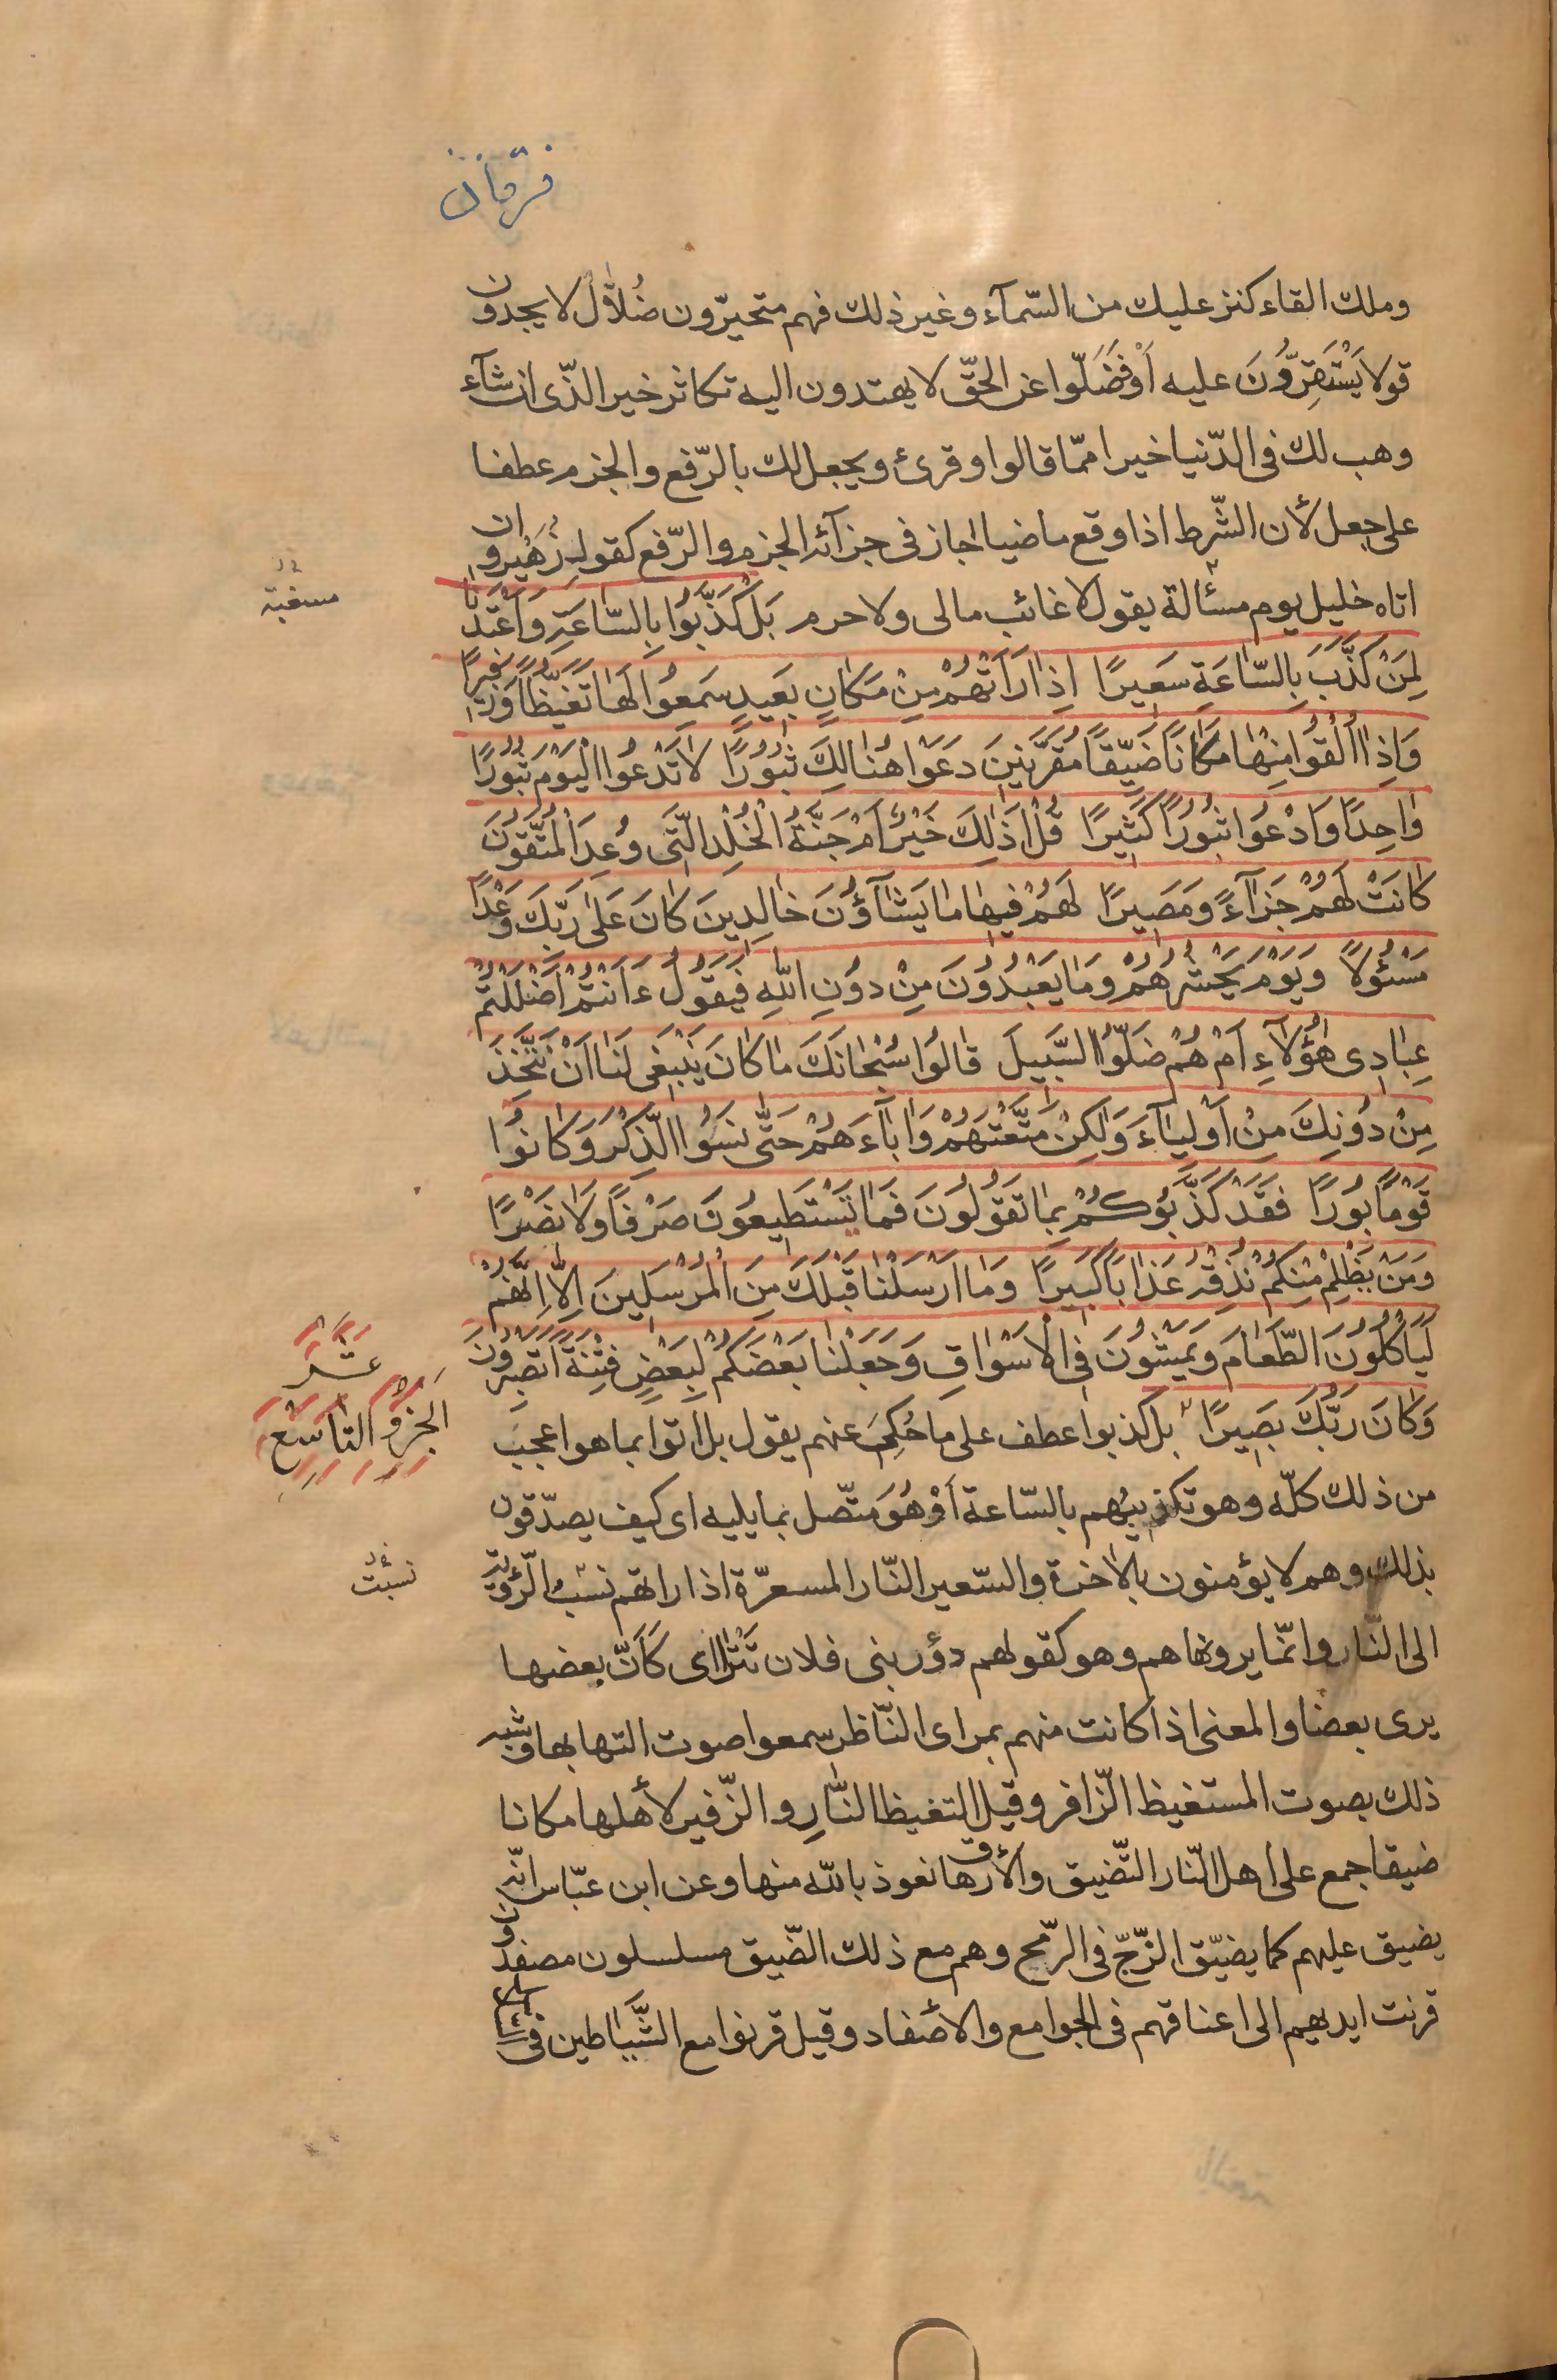 فرقان
وملك القاء كنز عليك من السّمآء وغير ذلك فهم متحيّرون ضُلّال لا يجدون
قولا يَسْتَقِرّونَ عليه أَوْ فَضَلّوا عن الحقّ لا يهتدون اليه تكاثر خير الذّى ان شآء
وهب لك فى الدّنيا خيرا ممّا قالوا وقرئ ويجعل لك بالرّفع والجزم عطفا
على جعل لأن الشّرط اذا وقع ماضيا جاز فى جزآئه الجزم والرّفع كقوله زُهَير وان
اتاه خليل يوم مسئالة يقول لا غائب مالى ولا حرم بَلْ كَذَّبُوا بِالسّاعَةِ وَاَعْتَدْنا
مسغبة خ‌ل
لِمَنْ كَذَّبَ بِالسّاعَةِ سَعيرًا اِذا رَاَتْهُمْ مِنْ مَكانٍ بَعيدٍ سَمِعُوا لَها تَغَيُّظًا وَزَفيرًا
وَاِذا اُلْقُوا مِنْها مَكانًا ضَيِّقًا مُقَرَّنينَ دَعَوْا هُنالِكَ ثُبُورًا لا تَدْعُوا الْيَوْمَ ثُبُورًا
واحِدًا وَادْعُوا ثُبُورًا كَثيرًا قُلْ اَذلِكَ خَيْرٌ اَمْ جَنَّةُ الْخُلْدِ الَّتى وُعِدَ الْمُتَّقُونَ
كانَتْ لَهُمْ جَزآءً وَمَصيرًا لَهُمْ فيها ما يَشآؤُنَ خالِدينَ كانَ عَلى رَبِّكَ وَعْدًا
مَسْئُولًا وَيَوْمَ يَحْشُرُهُمْ وَما يَعْبُدُونَ مِنْ دُونِ اللّهِ فَيَقُولُ ءَاَنْتُمْ اَضْلَلْتُمْ
عِبادى هؤُلآءِ اَمْ هُمْ ضَلُّوا السَّبيلَ قالُوا سُبْحانَكَ ما كانَ يَنْبَغى لَنا اَنْ نَتَّخِذَ
مِنْ دُونِكَ مِنْ اَوْلِيآءَ وَلكِنْ مَتَّعْتَهُمْ وَابآءَهُمْ حَتّى نَسُوا الذِّكْرَ وَكانُوا
قَوْمًا بُورًا فَقَدْ كَذَّبُوكُمْ بِما تَقُولُونَ فَما تَسْتَطيعُونَ صَرْفًا وَلا نَصْرًا
وَمَنْ يَظْلِمْ مِنْكُمْ نُذِقْهُ عَذابًا كَبيرًا وَما اَرْسَلْنا قَبْلَكَ مِنَ الْمُرْسَلينَ اِلّا اِنَّهُمْ
لَيَاْكُلُونَ الطَّعامَ وَيَمْشُونَ فِى الْاَسْواقِ وَجَعَلْنا بَعْضَكُمْ لِبَعْضٍ فِتْنَةً اَتَصْبِرُونَ
وَكانَ رَبُّكَ بَصيرًا بل كذبوا عطف على ما حُكِىَ عنهم يقول بل اتوا بما هو اعجب
الجزؤ التاسع
عشر
من ذلك كلّه وهو تكذيبهم بالسّاعة أَوْ هُوَ متّصل بما يليه اى كيف يصدّقون
بذلك وهم لا يؤمنون بالاخرة والسّعير النّار المسعرّة اذا راتهم نسب الرّؤية
نسبت خ‌ل
الى النّار وانّما يرونها هم وهو كقولهم دؤر بنى فلان تَتَراآى كَاَنّ بعضها
يرى بعضا والمعنى اذا كانت منهم بمراى النّاظر سمعوا صوت التهابها وشبه
ذلك بصوت المستغيظ الزّافر وقيل التغيظ النّارِ والزّفير لأهلها مكانا
ضيقا جمع على اهل النّار التّضييق والأرهاق نعوذ بالله منها وعن ابن عبّاس انّه
يضيق عليهم كما يضيّق الزّجّ فى الرّمح وهم مع ذلك الضّيق مسلسلون مصفدون
قرنت ايديهم الى اعناقهم فى الجوامع والأصفاد وقيل قرنوا مع الشَّياطين فى